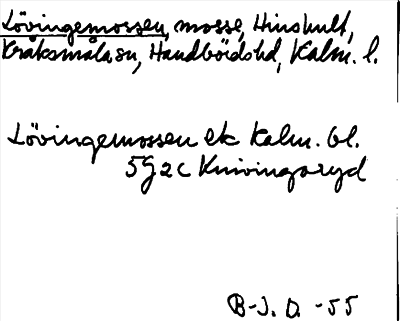 Lövingemossen, mosse, Hinshult,
Kråksmåla sn, Handbörds hd, Kalm. l.
Lövingemossen ek Kalm. bl.
5G2c Knivingaryd
B-J. O. -55